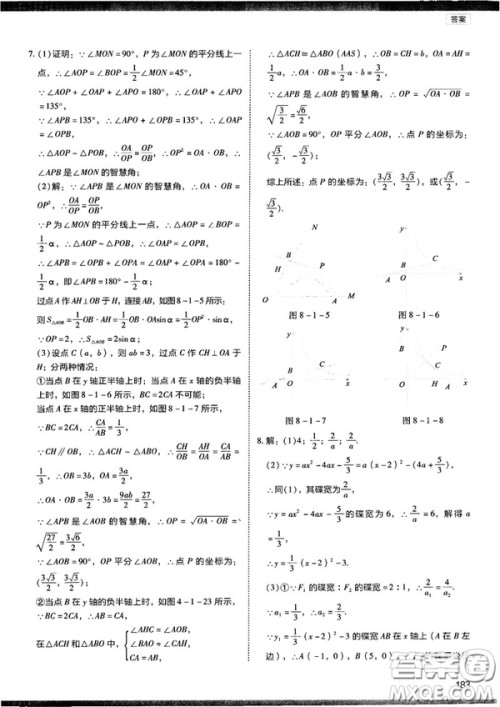 答案
7. (1)证明：∵∠MON=90°，P为∠MON的平分线上一
点，∴∠AOP=∠BOP=1/2∠MON=45°，
∵∠AOP+∠OAP+∠APO=180°，∴∠OAP+∠APO
=135°，
∵∠APB=135°，∴∠APO+∠OPB=135°，∴∠OAP
=∠OPB，
∴△AOP∽△POB，∴OA/OP=OP/OB，∴OP²=OA·OB，∴
∠APB是∠MON的智慧角；
(2)解：∵∠APB是∠MON的智慧角，∴OA·OB=
OP²，∴OA/OP=OP/OB，
∵P为∠MON的平分线上一点，∴∠AOP=∠BOP=
1/2α，∴△AOP∽△POB，∴∠OAP=∠OPB，
∴∠APB=∠OPB+∠OPA=∠OAP+∠OPA=180°-
1/2α，即∠APB=180°-1/2α；
过点A作AH⊥OB于H，连接AB，如图8-1-5所示：
则S△AOB=1/2OB·AH=1/2OB·OAsinα=1/2OP²·sinα，
∵OP=2，∴S△AOB=2sinα；
(3)设点C(a，b)，则ab=3，过点C作CH⊥OA于
H；分两种情况：
①当点B在y轴正半轴上时；当点A在x轴的负半轴
上时，如图8-1-6所示，BC=2CA不可能；
当点A在x轴的正半轴上时，如图8-1-7所示：
∵BC=2CA，∴CA/AB=1/3，
∵CH∥OB，∴△ACH∽△ABO，∴CH/OB=AH/OA=CA/AB
=1/3，∴OB=3b，OA=3a/2，
∴OA·OB=3a/2·3b=9ab/2=27/2，
∵∠APB是∠AOB的智慧角，∴OP=√(OA·OB)=
√(27/2)=3√6/2，
∵∠AOB=90°，OP平分∠AOB，∴点P的坐标为：
(3√3/2，3√3/2)；
②当点B在y轴的负半轴上时，如图8-1-23所示，
在△ACH和△ABO中，{∠AHC=∠AOB，
∠BAO=∠CAH，
CA=AB，
∴△ACH≌△ABO(AAS)，∴OB=CH=b，OA=AH=
1/2a，∴OA·OB=1/2ab=3/2，
∵∠APB是∠AOB的智慧角，∴OP=√(OA·OB)=
√(3/2)=√6/2，
∵∠AOB=90°，OP平分∠AOB，∴点P的坐标为：
(√3/2，-√3/2)；
综上所述：点P的坐标为：(3√3/2，3√3/2)，或(√3/2，-
√3/2).
图8-1-5
图8-1-6
图8-1-7
图8-1-8
8.解：(1)4；1/2；2/a；2/a.
(2)∵y=ax²-4ax-5/3=a(x-2)²-(4a+5/3)，
∴同(1)，其碟宽为2/a，
∵y=ax²-4ax-5/3的碟宽为6，∴2/a=6，解得a
=1/3，
∴y=1/3(x-2)²-3.
(3)①∵F₁的碟宽：F₂的碟宽=2：1，∴2/a₁=4/a₂，
∵y₁=1/3(x-2)²-3的碟宽AB在x轴上(A在B左
边)，∴A(-1，0)，B(5，0)
183
答案圈
MXQE.COM